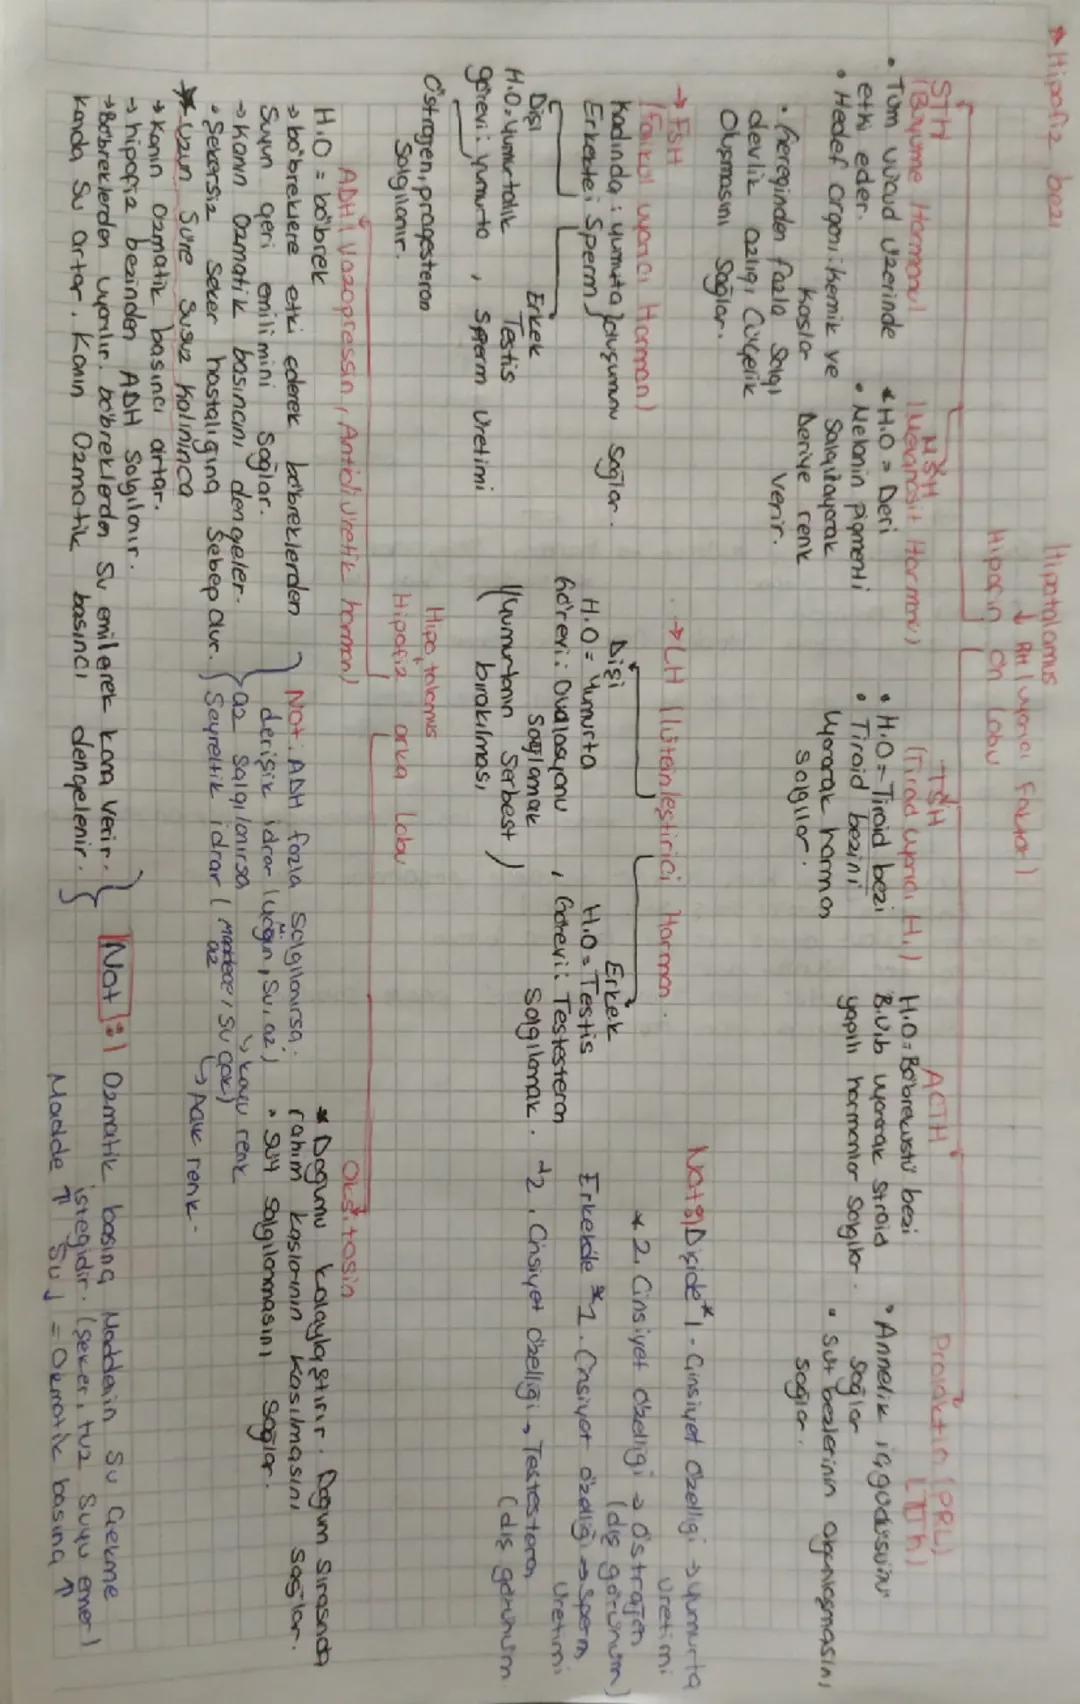 * Hipofiz bezi
Hipotalamus
↓ RH (uyarıcı Faktör)
Hipofizin ön lobu
STH
(Büyüme Hormonu)
• Tüm vücud üzerinde
etki eder.
• Hedef organı: kemik ve
kaslar
• Gereğinden fazla salgı
devlik azlığı cücelik
Oluşmasını sağlar.
MSH
(Melanosit Hormonu)
* H.O = Deri
• Melanin pigmenti
Salgılayarak
Deriye renk
verir.
TSH
(Tiroid uyarıcı H.)
• H.O = Tiroid bezi
• Tiroid bezini
uyararak hormon
salgılar.
ACTH
H.O = Böbreküstü bezi
B.Ü.b uyararak stroid
yapılı hormonlar salgılar.
Prolaktin (PRL)
(LTH)
• Annelik içgüdüsünü
sağlar
• Süt bezlerinin olgunlaşmasını
sağlar.
→ FSH
(Folikül uyarıcı Hormon)
Kadında: yumurta oluşumunu sağlar.
Erkekte: Sperm
Dişi Erkek
H.O. Yumurtalık Testis
görevi: yumurta , sperm üretimi
Östrojen, progesteron
Salgılanır.
→ LH (lüteinleştirici Hormon.
Dişi
H.O = Yumurta
Görevi: Ovulasyonu
sağlamak
(Yumurtanın Serbest
bırakılması)
Erkek
H.O = Testis
, Görevi: Testesteron
Salgılamak.
Not: Dişide * 1- Cinsiyet özelliği → yumurta
üretimi
* 2. Cinsiyet özelliği → östrojen
(dış görünüm)
Erkekde * 1. Cinsiyet özelliği → Sperm
üretimi
* 2. Cinsiyet özelliği → Testesteron
(dış görünüm
Hipotalamus
Hipofiz arka lobu
ADH (Vazopressin, Antidiüretik hormon)
H.O = böbrek
→ böbreklere etki ederek böbreklerden
Suyun geri emilimini sağlar.
→ Kanın Ozmatik basıncını dengeler.
• Şekersiz şeker hastalığına Sebep Olur.
* Uzun Süre Susuz Kalınınca
→ Kanın Ozmatik basıncı artar.
→ hipofiz bezinden ADH salgılanır.
→ Böbreklerden uyarılır. böbreklerden Su emilerek kana verir.
Kanda Su artar. Kanın Ozmatik basıncı dengelenir.
Not: ADH fazla Salgılanırsa.
derişik idrar (yoğun, su: az)
↳ koyu renk
az salgılanırsa
Seyreltik idrar (Madde: az, su çok)
↳ Açık renk.
Oksitosin
* Doğumu kolaylaştırır. Doğum sırasında
rahim kaslarının kasılmasını sağlar.
• Süt salgılanmasını sağlar.
Not: Ozmatik basınç Maddenin Su Çekme
isteğidir. (şeker, tuz suyu emer)
Madde ↑ Su ↓ = Ozmatik basınç ↑